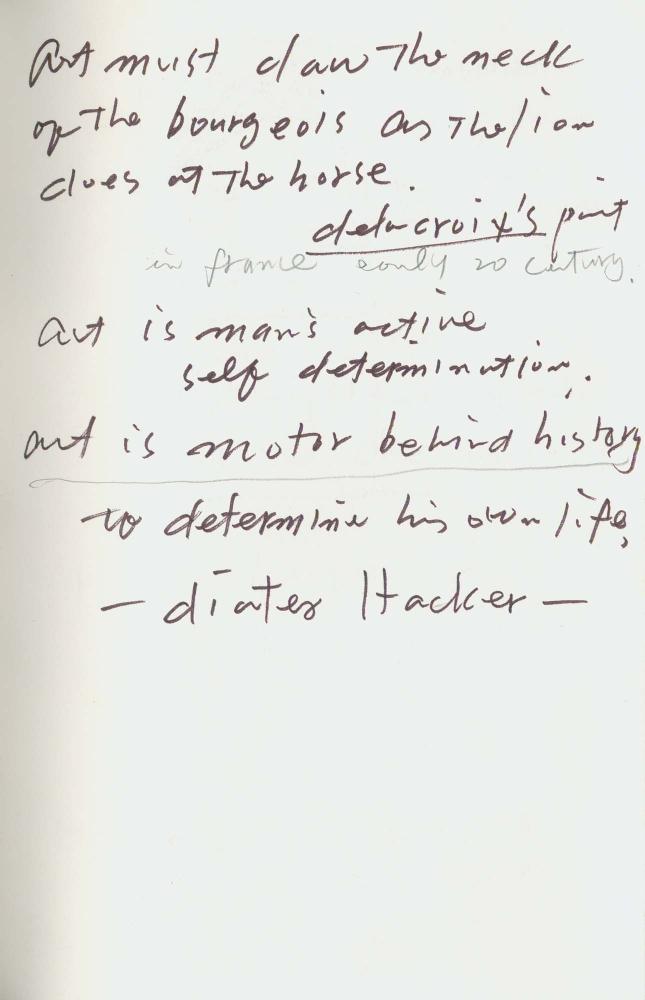 Art must claw The neck
of The bourgeois as The lion
clues at The horse.
delacroix's point
in france early 20 century.
art is man's active
self determination.
art is motor behind history
to determine his own life,
— diater Hacker —